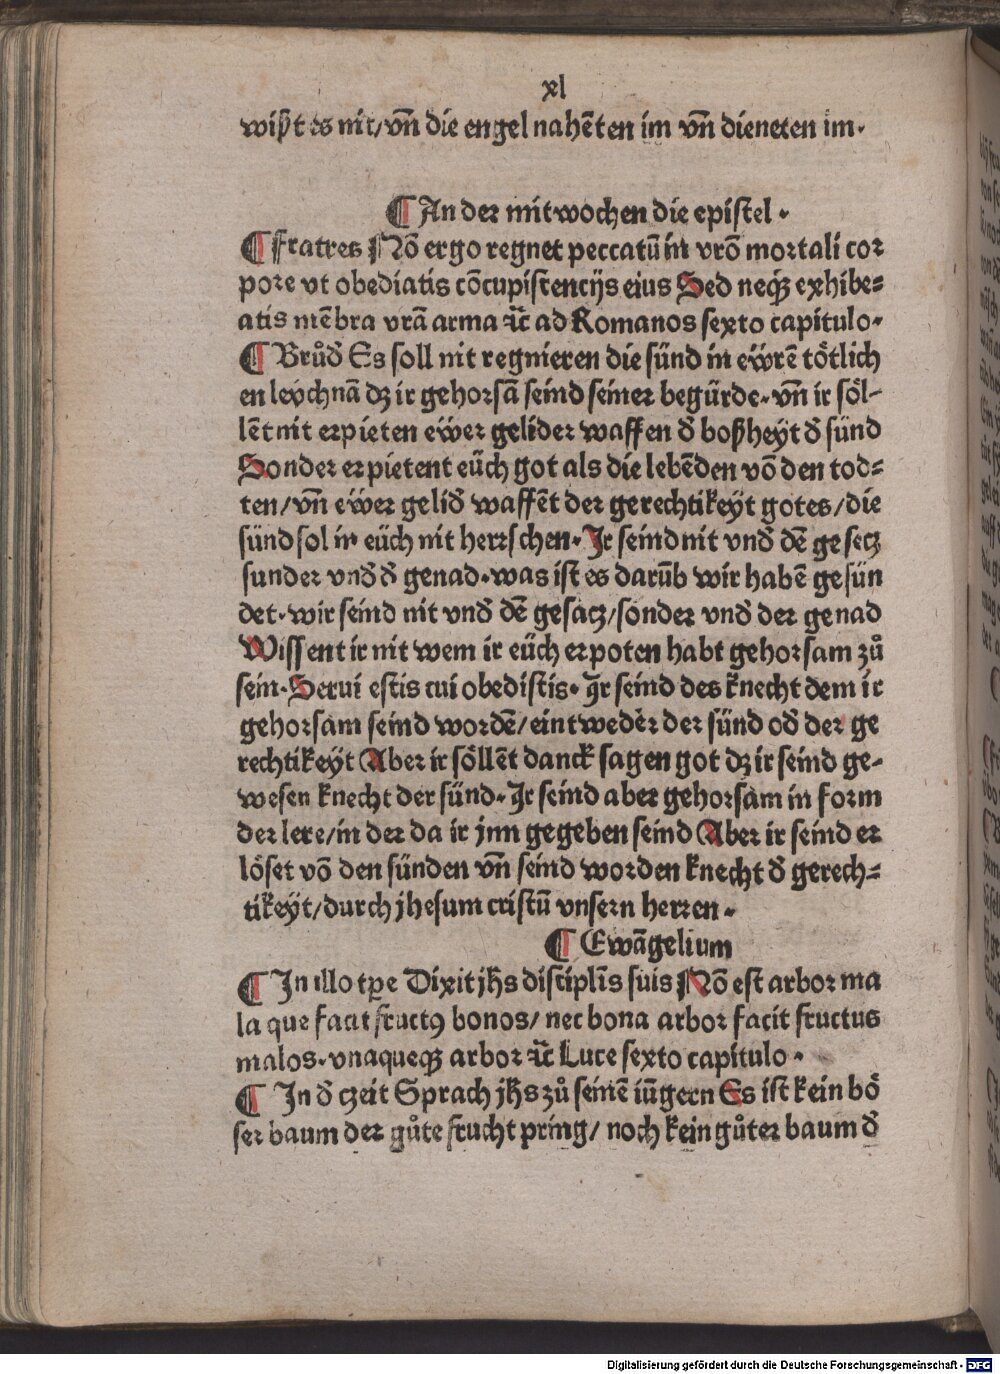 xl
wißt es nit/ vñ die engel nahẽten im vñ dieneten im·
¶ An der mitwochen die epistel·
¶ Fratres Nõ ergo regnet peccatũ in vrõ mortali cor
pore vt obediatis cõcupiscencijs eius Sed neqȝ exhibe⸗
atis mẽbra vrã arma ⁊c̃ ad Romanos sexto capitulo·
¶ Brůđ Es soll nit regnieren die sünd in eẅrẽ tötlich
en leychnã dz ir gehorsã seind seiner begürde· vñ ir söl⸗
lẽt nit erpieten eẅer gelider waffen đ boßheyt đ sünd
Sonder erpietent eüch got als die lebẽden võ den tod⸗
ten/ vñ eẅer geliđ waffẽt der gerechtikeyt gotes/ die
sünd sol in eüch nit herrschen· Ir seind nit vnđ dẽ gesetz
sunder vnđ đ genad· was ist es darũb wir habẽ gesün
det· wir seind nit vnđ dẽ gesacz/ sonder vnđ der genad
Wissent ir nit wem ir eüch erpoten habt gehorsam zů
sein· Serui estis cui obedistis· Ir seind des knecht dem ir
gehorsam seind wordẽ/ eintweder der sünd ođ der ge
rechtikeyt Aber ir söllẽt danck sagen got dz ir seind ge⸗
wesen knecht der sünd· Ir seind aber gehorsam in form
der lere/ in der da ir jnn gegeben seind Aber ir seind er
löset võ den sünden vñ seind worden knecht đ gerech⸗
tikeyt/ durch jhesum cristũ vnsern herren·
¶ Ewãgelium
¶ In illo tꝑe Dixit jhs disciplis suis Nõ est arbor ma
la que facit fructꝰ bonos/ nec bona arbor facit fructus
malos· vnaqueqȝ arbor ⁊c̃ Luce sexto capitulo·
¶ In đ czeit Sprach jhs zů seinẽ iũgern Es ist kein bö
ser baum der gůte frucht pring/ noch kein gůter baum đ
Digitalisierung gefördert durch die Deutsche Forschungsgemeinschaft - DFG